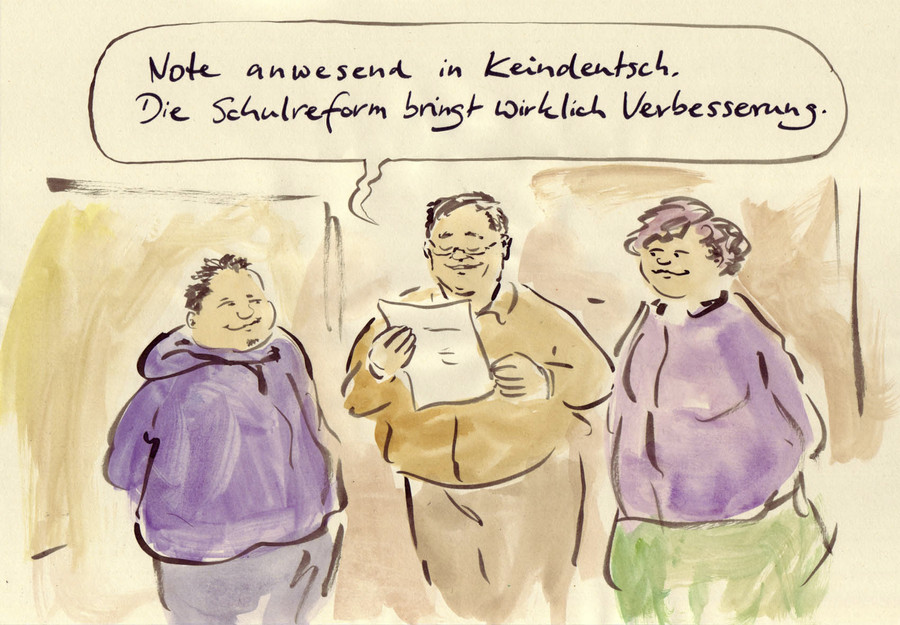 Note anwesend in Keindeutsch.
Die Schulreform bringt wirklich Verbesserung.